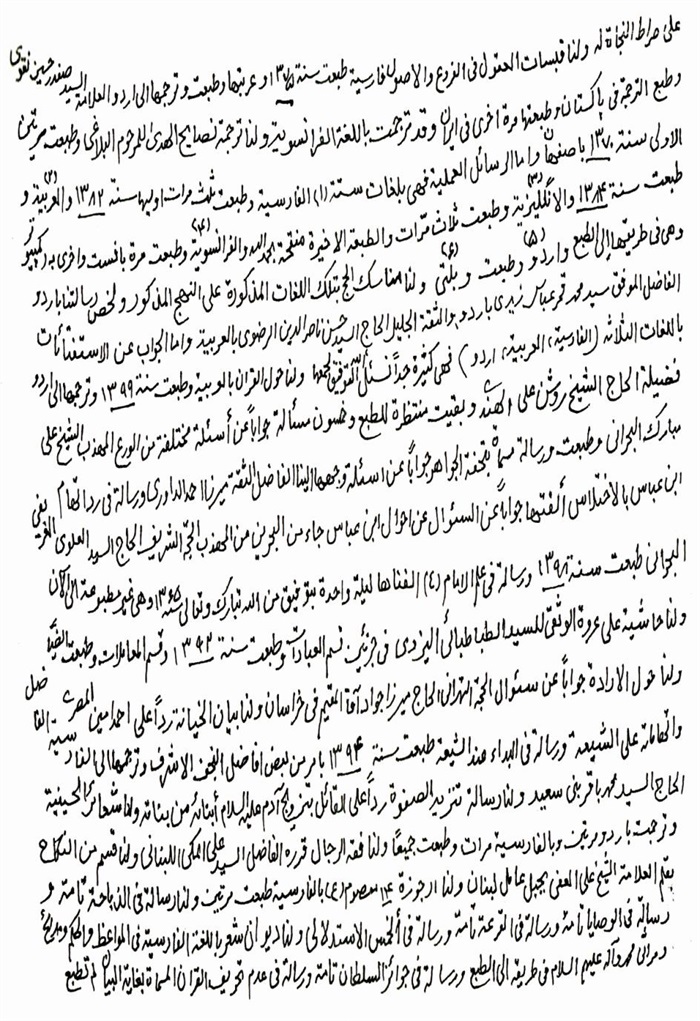 على صراط النجاة له ولنا قبسات العقول فى الفروع والاصول فارسية طبعت سنة ١٣٧٥ وعربتها وطبعت وترجمها الى اردو العلامة السيد صفدر حسين نقوى
وطبع الترجمة فى پاكستان وطبعتها مرة اخرى فى ايران وقد ترجمت باللغة الفرانسوية ولنا ترجمة نصايح الهدى للمرحوم البلاغى وطبعت مرتين
الاولى سنة ١٣٧٠ باصفهان واما الرسائل العملية فهى بلغات ستة (١) الفارسية وطبعت ثلث مرات اوليها سنة ١٣٨٢ (٢) والعربية و
طبعت سنة ١٣٨٤ (٣) والانگليزية وطبعت ثلاث مرات والطبعة الاخيرة منقحة بحمد الله (٤) والفرانسوية وطبعت مرة بافست واخرى به كمپيوتر
وهى فى طريقها الى الطبع (٥) واردو وطبعت (٦) و ولنا مناسك الحج بتلك اللغات المذكورة على النهج المذكور ولخص رسالتنا باردو
الفاضل الموفق سيد محمد قمر عباس زيدى باردو والثقة الجليل الحاج السيد حسن ناصر الدين الرضوى بالعربية واما الجواب عن الاستفتائات
باللغات الثلاثه (الفارسية، العربية، اردو) فهى كثيرة جداً نسئل الله التوفيق لجمعها ولنا حول القران بالعربية وطبعت سنة ١٣٩٩ وترجمها الى اردو
فضيلة الحاج الشيخ روشن على الهند وبقيت منتظرة للطبع وخمسون مسألة جواباً عن أسئلة مختلفة من الورع المهذب الشيخ على
مبارك البحرانى وطبعت ورسالة مسماة بتحفة الجواهر جواباً عن اسئلة وجهها الينا الفاضل الثقة ميرزا احمد الداورى ورسالة فى رد اتهام
ابن عباس بالاختلاس ألفتها جواباً عن السئوال عن احوال ابن عباس جاء من البحرين من المهذب الحجة الشريف الحاج السيد العلوى الغريفى
البحرانى طبعت سنة ١٣٩٨ ورسالة فى علم الامام (ع) الفناها ليلة واحدة بتوفيق من الله تبارك وتعالى سنة ١٣٦٥ وهى غير مطبوعة الى الآن
ولنا حاشية على عروة الوثقى للسيد الطباطبائى اليزدى فى جزئين قسم العبادات وطبعت سنة ١٣٩٢ وقسم المعاملات وطبعت ايضاً
ولنا حول الارادة جواباً عن سئوال الحجة التهرانى الحاج ميرزا جواد آقا المقيم فى خراسان ولنا بيان الخيانة رداً على احمد امين المصرى
والمحاماة على الشيعة ورسالة فى البداء عند الشيعة طبعت سنة ١٣٩٤ بامر من بعض افاضل النجف الاشرف وترجمها الى الفارسية الفاضل
الحاج السيد محمد باقر بنى سعيد ولنا رسالة تنزيه الصفوة رداً على القائل بتزويج آدم عليه السلام أبنائه من بناته ولنا شعائر الحسينية
وترجمت باردو مرتين وبالفارسية مرات وطبعت جميعًا ولنا فقه الرجال قرره الفاضل السيد على المكى اللبنانى ولنا قسم من النكاح
بقلم العلامة الشيخ على العفى بجبل عامل لبنان ولنا ارجوزة ١٤ معصوم (ع) بالفارسية طبعت مرتين ولنا رسالة فى الذباحة تامة و
رسالة فى الوصايا تامة ورسالة فى القرعة تامة ورسالة فى الخمس الاستدلالى ولنا ديوان شعر باللغة الفارسية فى المواعظ والحكم ومدايح
ومراثى محمد وآله عليهم السلام فى طريقه الى الطبع ورسالة فى جوائز السلطان تامة ورسالة فى عدم تحريف القران المسماة بغاية البيان لم تطبع